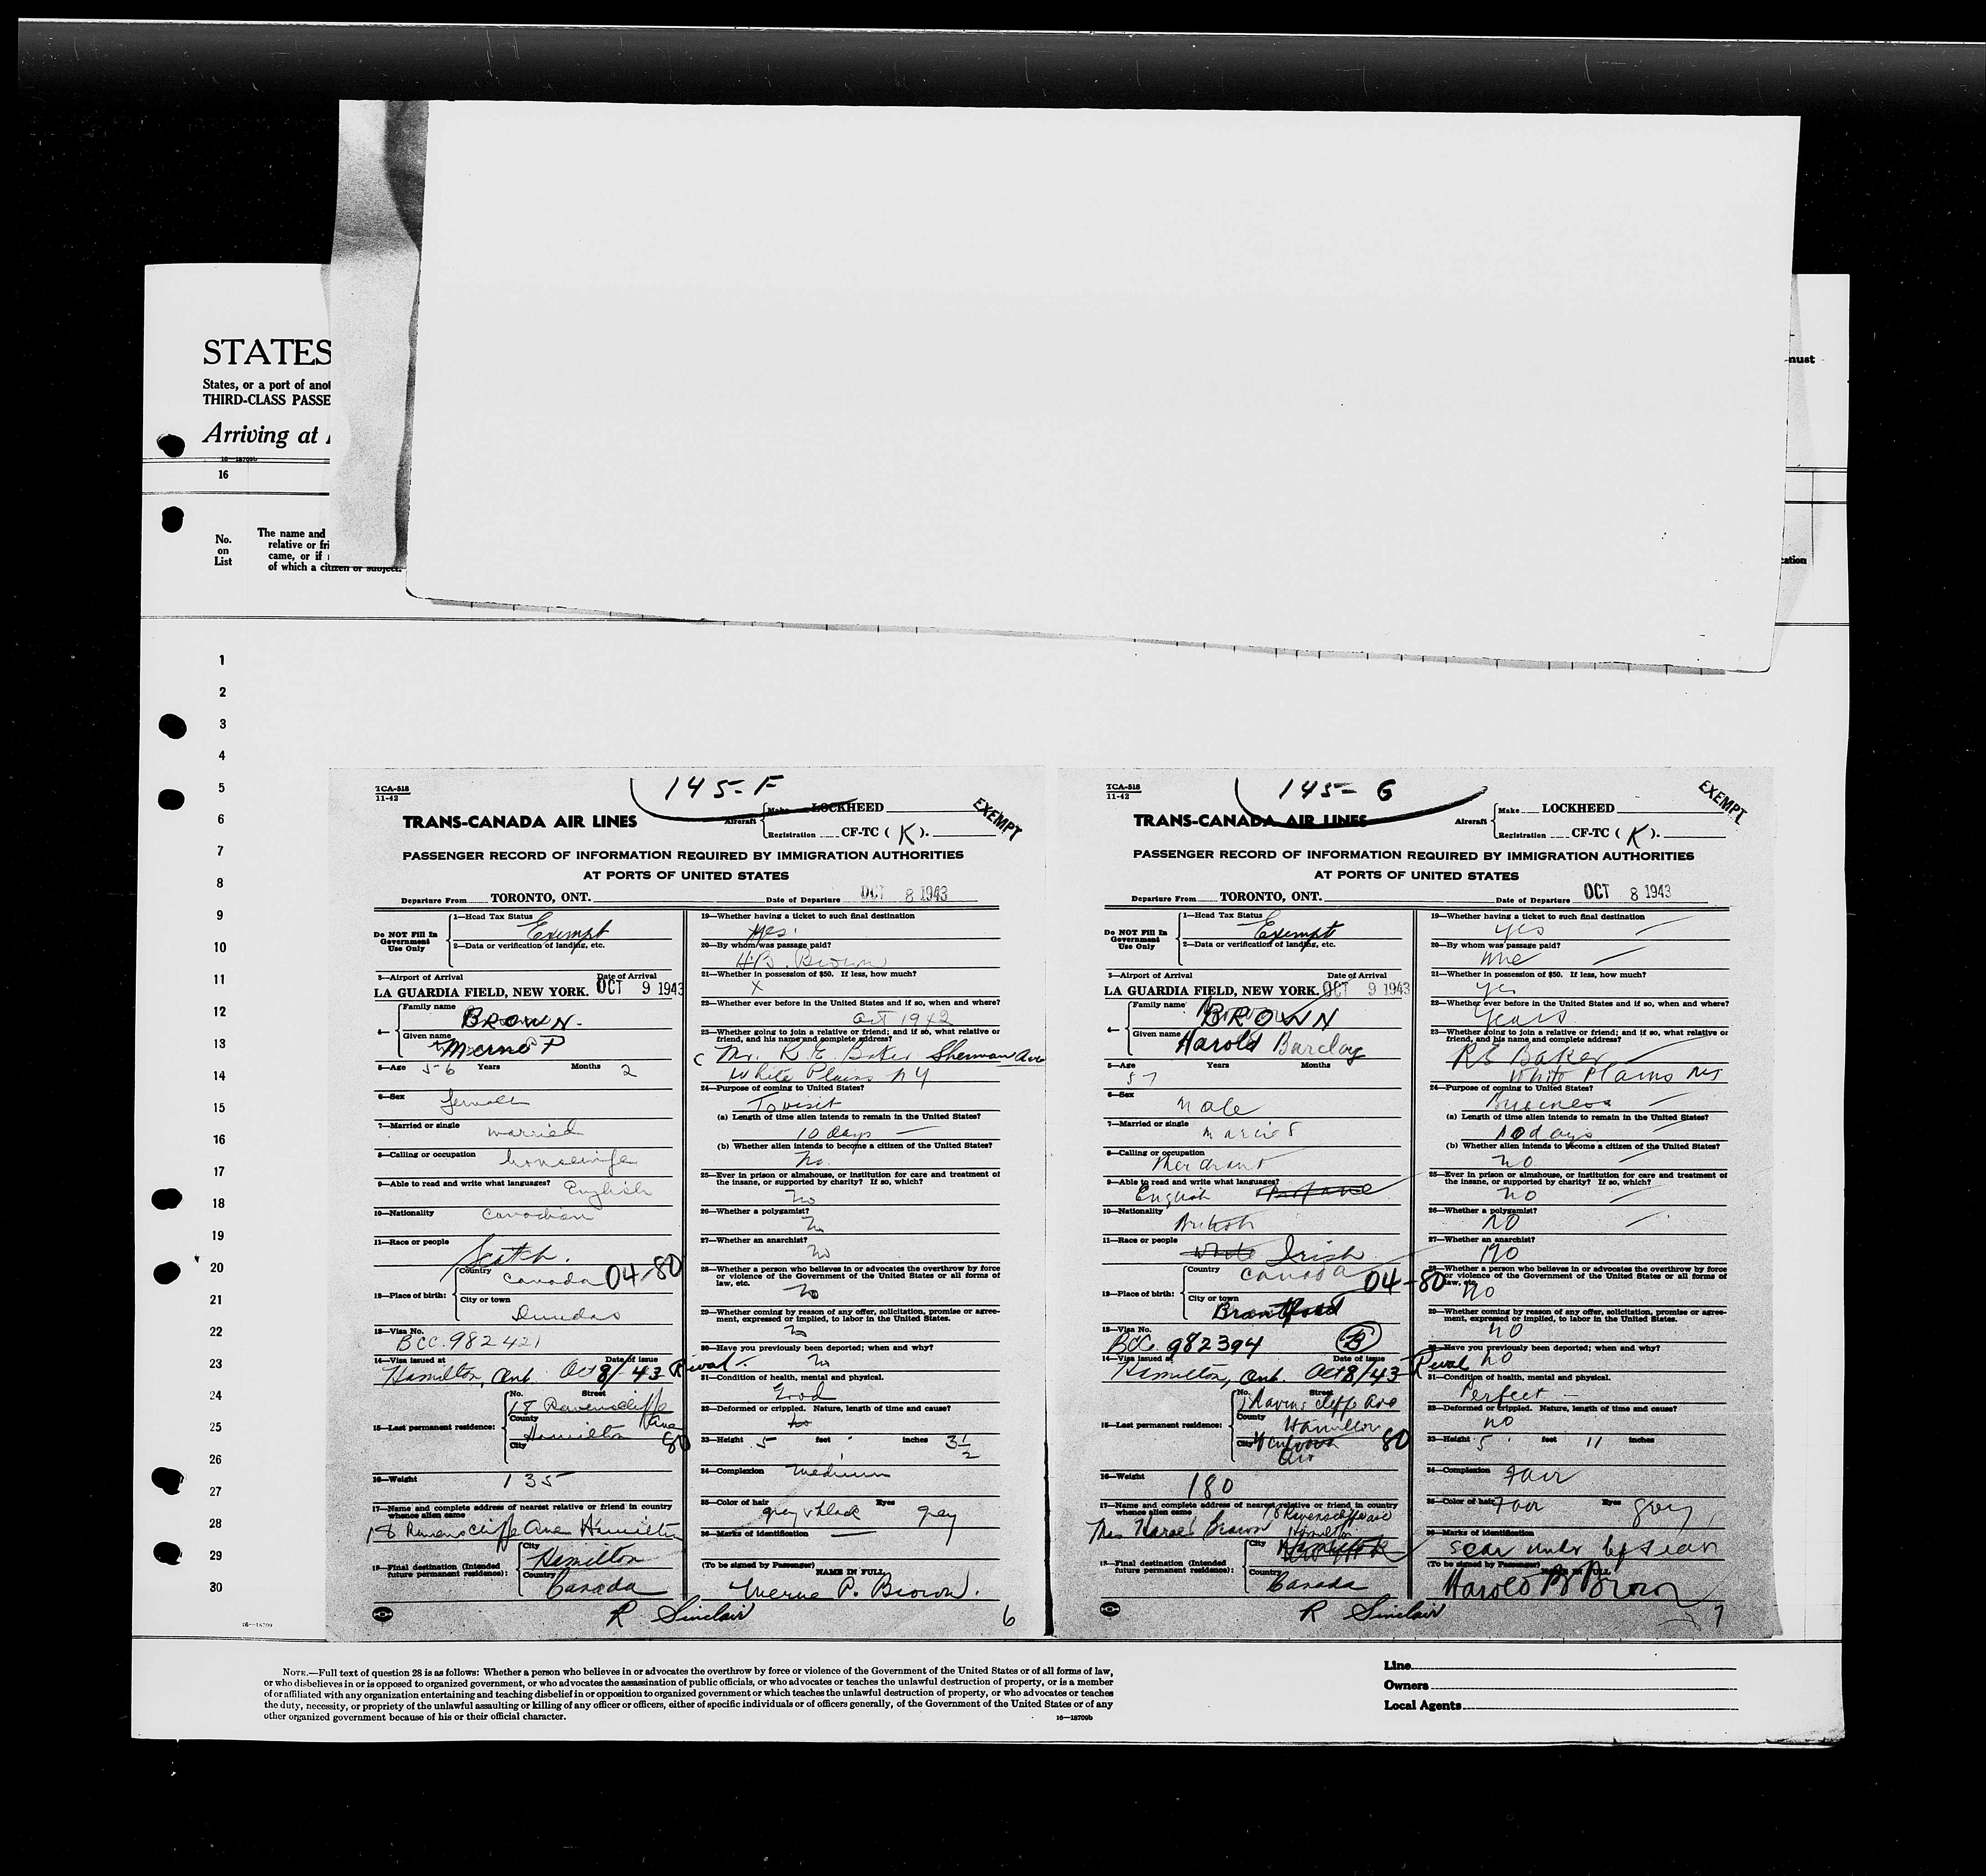 STATES
States, or a port of anot
THIRD-CLASS PASSE
Arriving at
16—18709b
16
No.
on
List
The name and
relative or fri
came, or if
of which a citizen or subject.
must
cation
1
2
3
4
5
6
7
8
9
10
11
12
13
14
15
16
17
18
19
20
21
22
23
24
25
26
27
28
29
30
16—18709
TCA-518
11-42
145-F
EXEMPT
TRANS-CANADA AIR LINES
Aircraft
Make LOCKHEED
Registration CF-TC ( K ).
PASSENGER RECORD OF INFORMATION REQUIRED BY IMMIGRATION AUTHORITIES
AT PORTS OF UNITED STATES
Departure From TORONTO, ONT. Date of Departure OCT 8 1943
Do NOT Fill In
Government
Use Only
1—Head Tax Status
Exempt
2—Data or verification of landing, etc.
3—Airport of Arrival Date of Arrival
LA GUARDIA FIELD, NEW YORK. OCT 9 1943
4— Family name
BROWN.
Given name
Merne P
5—Age 56 Years Months 2
6—Sex
female
7—Married or single married
8—Calling or occupation housewife
9—Able to read and write what languages? English
10—Nationality Canadian
11—Race or people
Scotch.
12—Place of birth:
Country
Canada 04-80
City or town
Dundas
13—Visa No.
BCC. 982421
14—Visa issued at Date of issue
Hamilton, Ont. Oct 8/43 Rival -
15—Last permanent residence:
No. Street
18 Ravenscliffe Ave
County
Hamilton
City 80
16—Weight
135
17—Name and complete address of nearest relative or friend in country
whence alien came
18 Ravenscliffe Ave Hamilton
18—Final destination (Intended
future permanent residence):
City
Hamilton
Country
Canada
19—Whether having a ticket to such final destination
yes.
20—By whom was passage paid?
H.B. Brown
21—Whether in possession of $50. If less, how much?
X
22—Whether ever before in the United States and if so, when and where?
Oct 1942
23—Whether going to join a relative or friend; and if so, what relative or
friend, and his name and complete address?
Mr. R. E. Baker Sherman Ave
White Plains NY
24—Purpose of coming to United States?
To visit
(a) Length of time alien intends to remain in the United States?
10 days
(b) Whether alien intends to become a citizen of the United States?
No.
25—Ever in prison or almshouse, or institution for care and treatment of
the insane, or supported by charity? If so, which?
No
26—Whether a polygamist?
No
27—Whether an anarchist?
No
28—Whether a person who believes in or advocates the overthrow by force
or violence of the Government of the United States or all forms of
law, etc.
No
29—Whether coming by reason of any offer, solicitation, promise or agree-
ment, expressed or implied, to labor in the United States.
No
30—Have you previously been deported; when and why?
No
31—Condition of health, mental and physical.
Good
32—Deformed or crippled. Nature, length of time and cause?
No
33—Height 5 feet inches 3 1/2
34—Complexion medium
35—Color of hair grey & black Eyes grey
36—Marks of identification —
(To be signed by Passenger)
NAME IN FULL
Merne P. Brown.
R Sinclair
6
TCA-518
11-42
145-G
EXEMPT
TRANS-CANADA AIR LINES
Aircraft
Make LOCKHEED
Registration CF-TC ( K ).
PASSENGER RECORD OF INFORMATION REQUIRED BY IMMIGRATION AUTHORITIES
AT PORTS OF UNITED STATES
Departure From TORONTO, ONT. Date of Departure OCT 8 1943
Do NOT Fill In
Government
Use Only
1—Head Tax Status
Exempt
2—Data or verification of landing, etc.
3—Airport of Arrival Date of Arrival
LA GUARDIA FIELD, NEW YORK. OCT 9 1943
4— Family name
BROWN
Given name
Harold Barclay
5—Age Years Months
57
6—Sex
Male
7—Married or single
Married
8—Calling or occupation
9—Able to read and write what languages?
English
10—Nationality
British
11—Race or people
White Irish
12—Place of birth:
Country
Canada 04-80
City or town
Brantford
13—Visa No.
BCC. 982394 B
14—Visa issued at Date of issue
Hamilton, Ont. Oct 8/43 Rival
15—Last permanent residence:
No. Street
Ravenscliffe Ave
County
Hamilton
City 80
16—Weight
180
17—Name and complete address of nearest relative or friend in country
whence alien came
18 Ravenscliffe Ave
Mrs Harold Brown Hamilton
18—Final destination (Intended
future permanent residence):
City
Hamilton
Country
Canada
19—Whether having a ticket to such final destination
yes
20—By whom was passage paid?
me
21—Whether in possession of $50. If less, how much?
yes
22—Whether ever before in the United States and if so, when and where?
Years
23—Whether going to join a relative or friend; and if so, what relative or
friend, and his name and complete address?
R E Baker
White Plains NY
24—Purpose of coming to United States?
Business
(a) Length of time alien intends to remain in the United States?
10 days
(b) Whether alien intends to become a citizen of the United States?
no
25—Ever in prison or almshouse, or institution for care and treatment of
the insane, or supported by charity? If so, which?
no
26—Whether a polygamist?
no
27—Whether an anarchist?
no
28—Whether a person who believes in or advocates the overthrow by force
or violence of the Government of the United States or all forms of
law, etc.
no
29—Whether coming by reason of any offer, solicitation, promise or agree-
ment, expressed or implied, to labor in the United States.
no
30—Have you previously been deported; when and why?
no
31—Condition of health, mental and physical.
Perfect
32—Deformed or crippled. Nature, length of time and cause?
no
33—Height 5 feet 11 inches
34—Complexion Fair
35—Color of hair Fair Eyes grey
36—Marks of identification
scar under left ear
(To be signed by Passenger)
NAME IN FULL
Harold B Brown
R Sinclair
7
NOTE.—Full text of question 28 is as follows: Whether a person who believes in or advocates the overthrow by force or violence of the Government of the United States or of all forms of law,
or who disbelieves in or is opposed to organized government, or who advocates the assassination of public officials, or who advocates or teaches the unlawful destruction of property, or is a member
of or affiliated with any organization entertaining and teaching disbelief in or opposition to organized government or which teaches the unlawful destruction of property, or who advocates or teaches
the duty, necessity, or propriety of the unlawful assaulting or killing of any officer or officers, either of specific individuals or of officers generally, of the Government of the United States or of any
other organized government because of his or their official character.
16—18709b
Line
Owners
Local Agents